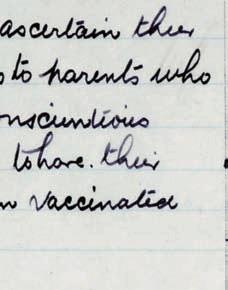 ascertain their
s to parents who
onscientious
to have. their
n vaccinated